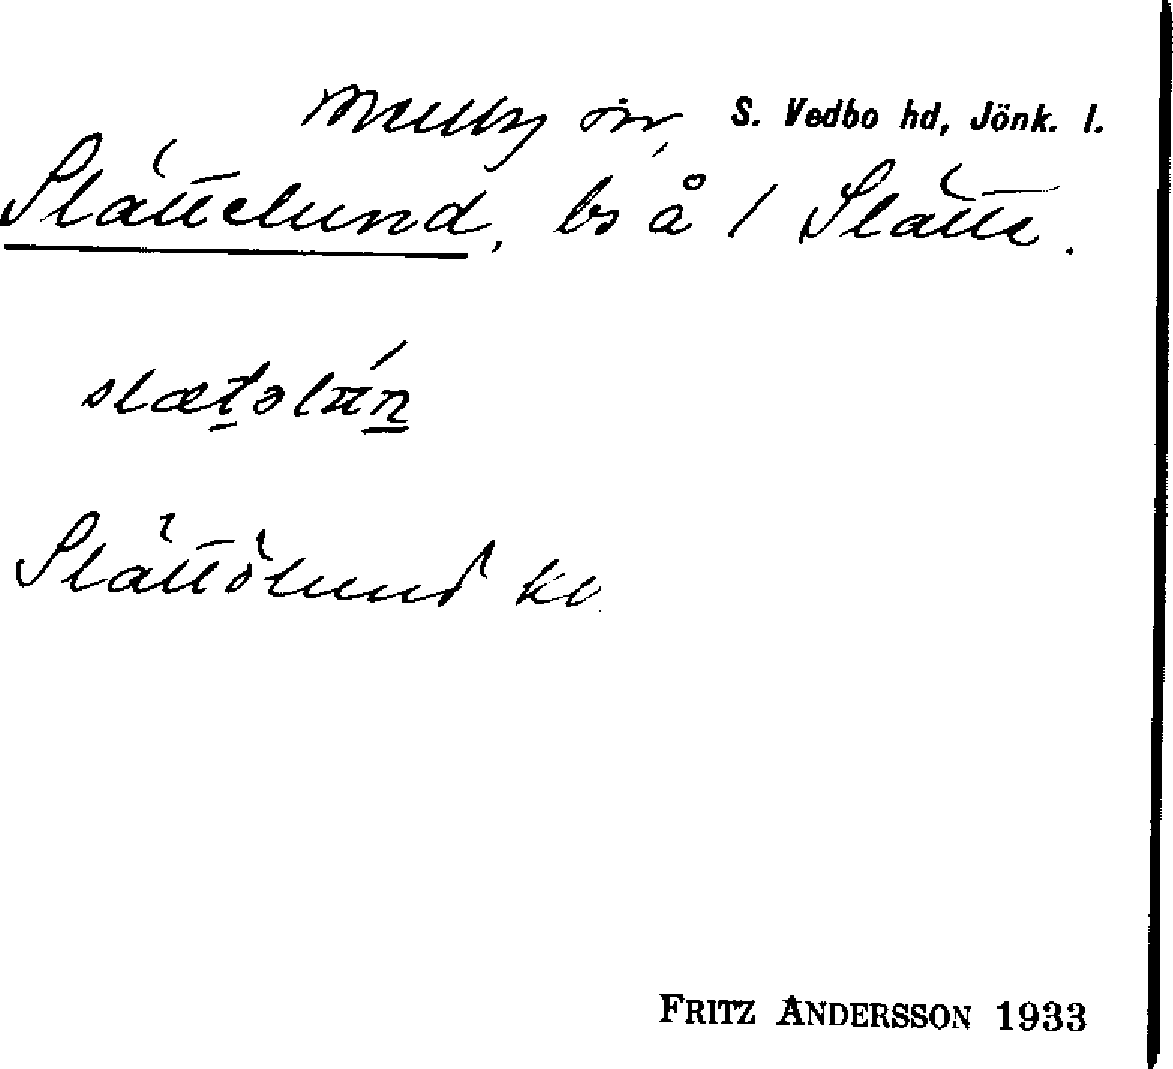 Mellby sn, S. Vedbo hd, Jönk. l.
Slättelund, ls å 1 Slätte.
slætəlun
Slättölund kv
FRITZ ANDERSSON 1933